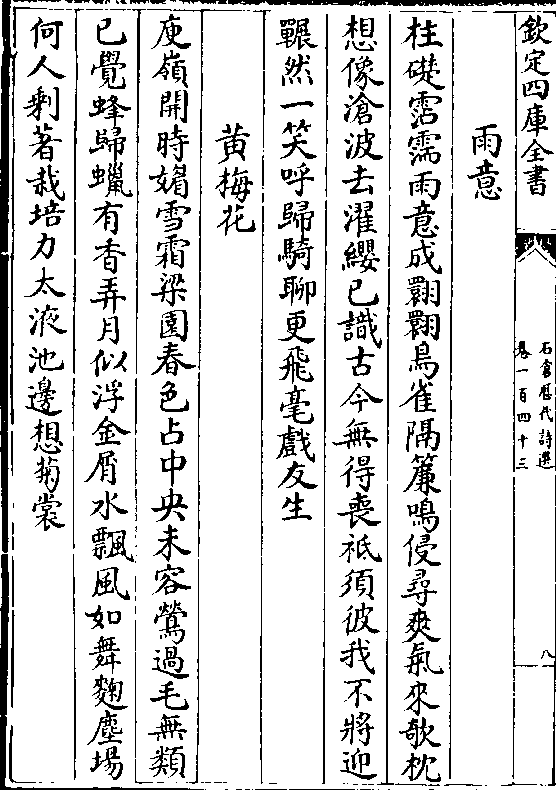 欽定四庫全書
石倉歷代詩選
卷一百四十三
八
雨意
柱礎霑濡雨意成翾翾鳥雀隔簾鳴侵尋爽氣來欹枕
想像滄波去濯纓已識古今無得喪祗須彼我不將迎
囅然一笑呼歸騎聊更飛毫戲友生
黄梅花
庾嶺開時媚雪霜梁園春色占中央未容鶯過毛無類
已覺蜂歸蠟有香弄月似浮金屑水飄風如舞麴塵場
何人剰著栽培力太液池邊想菊裳